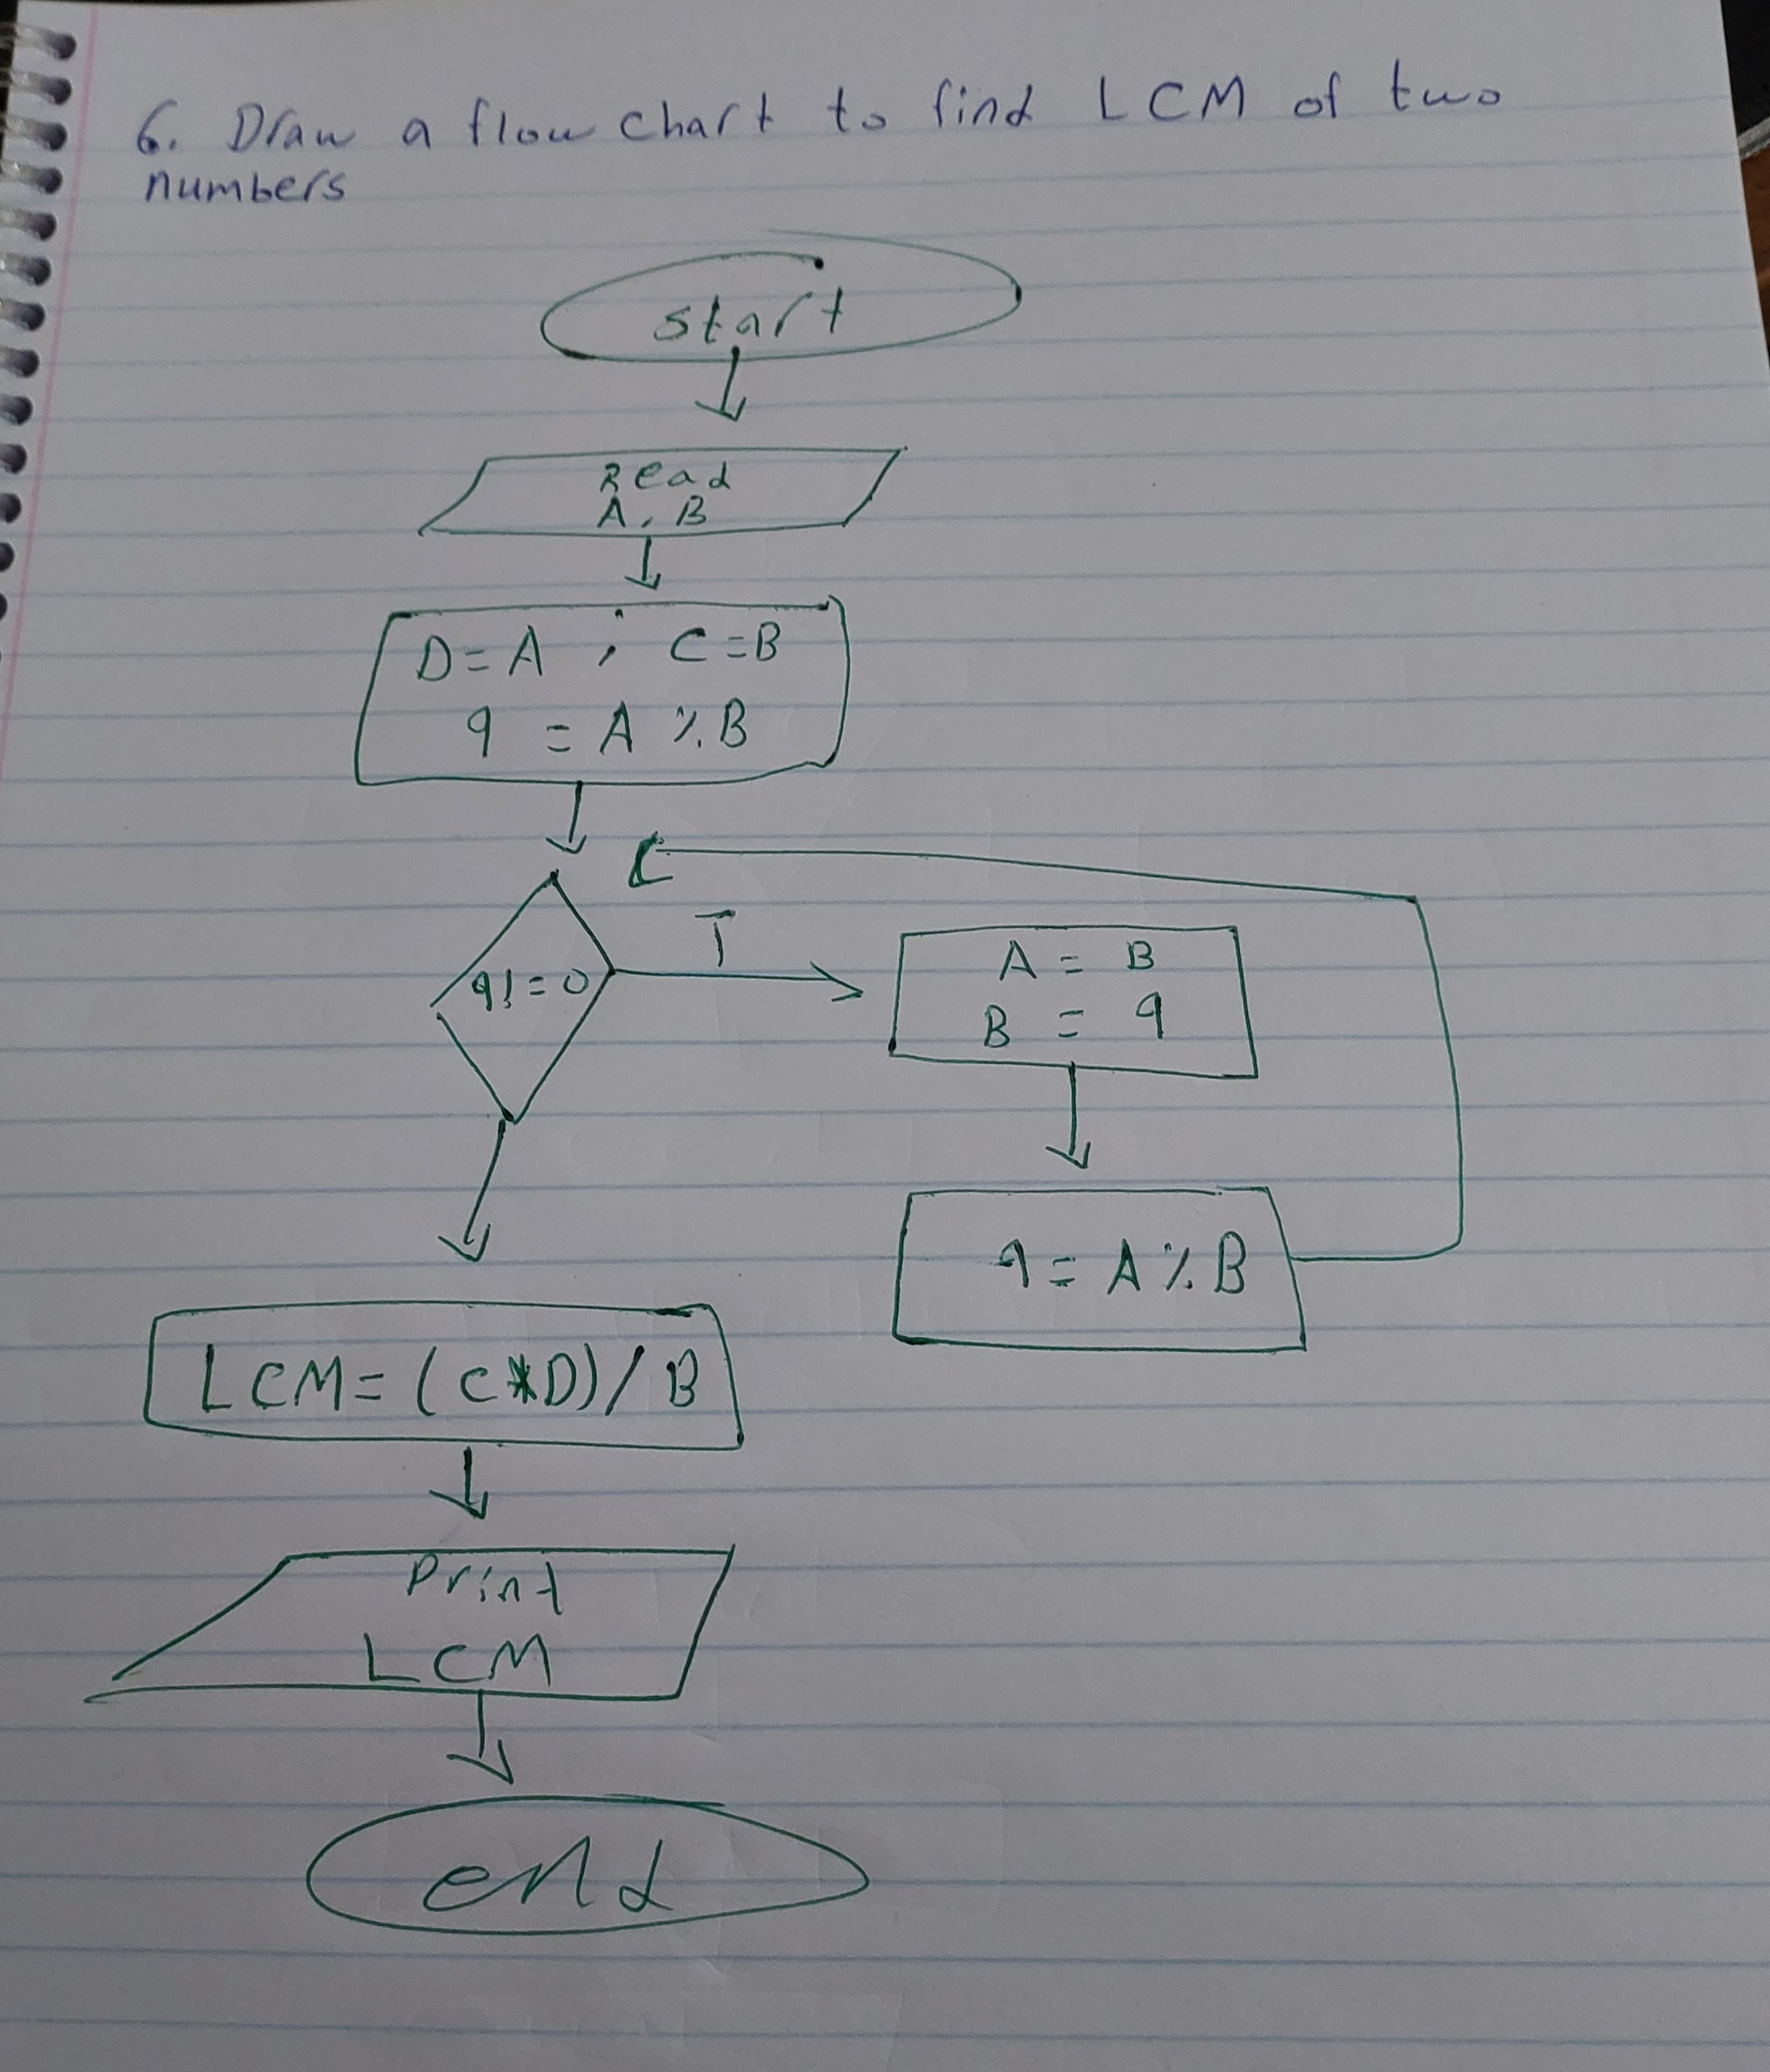 6. Draw a flow chart to find LCM of two
numbers
start
Read
A, B
D=A ; C=B
q = A % B
q!=0
T
A = B
B = q
q = A % B
LCM=(C*D)/B
Print
LCM
end